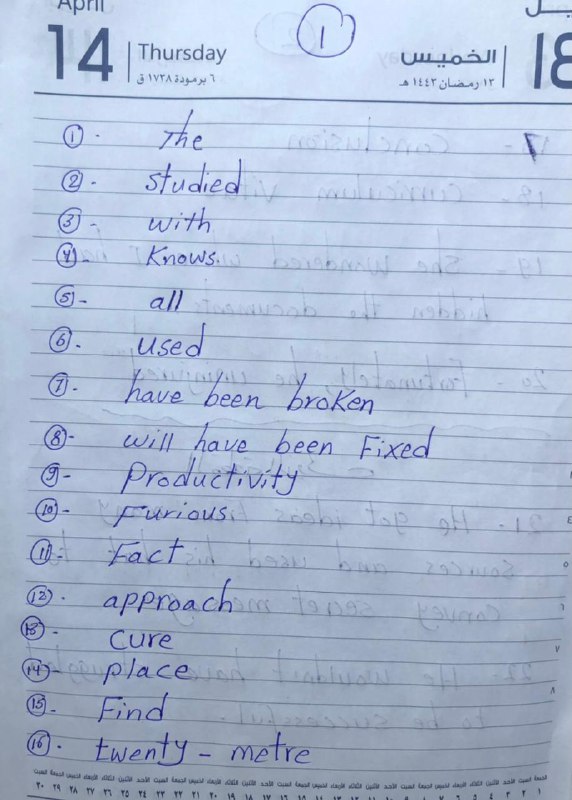 April
14 Thursday
1
الخميس
٦ برمودة ١٧٣٨ ق
١٣ رمضان ١٤٤٣ هـ
1 - The
2 - studied
3 - with
4 - Knows.
5 - all
6 - used
7 - have been broken
8 - will have been Fixed
9 - Productivity
10 - Furious
11 - Fact
12 - approach
13 - cure
14 - place
15 - Find
16 - twenty - metre